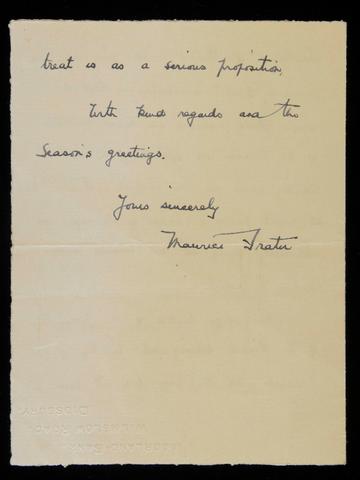 treat is as a serious proposition.
With kind regards and the
Season's greetings.
Yours sincerely
Maurice Frater
WILMSLOW ROAD,
DIDSBURY.